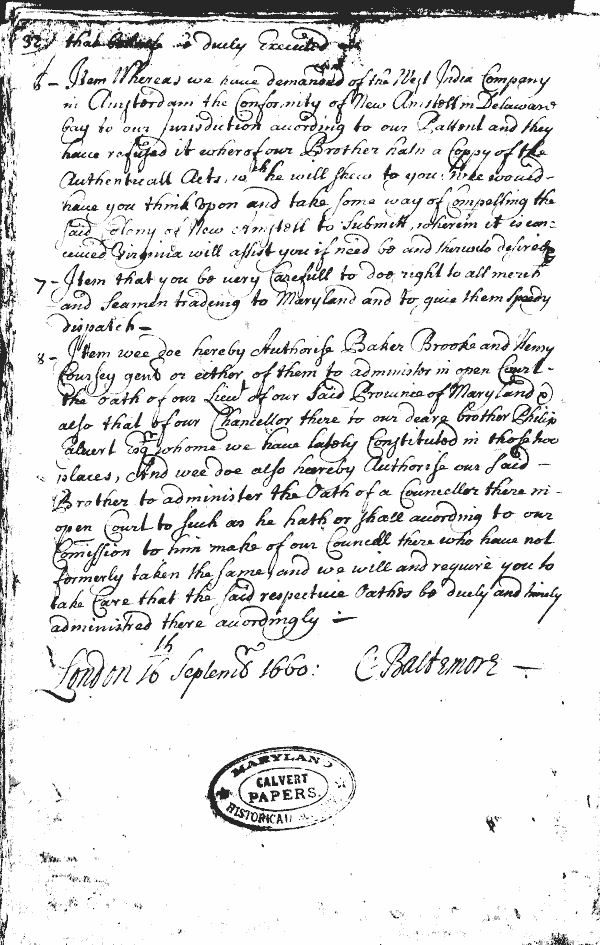 32
that ... is duely Executed
6 - Item Whereas we have demanded of the West India Company
in Amsterdam the Conformity of New Amstell in Delaware
bay to our Jurisdiction acording to our Pattent and they
have refused it wherof our Brother hath a Coppy of the
Authenticall Acts, wch he will shew to you: Wee would
have you think upon and take some way of Compelling the
said Colony of New Amstell to Submitt, wherein it is con=
ceived Virginia will assist you if need be and therunto desired
7 - Item that you be very Carefull to doe right to all merch
and Seamen trading to Maryland and to give them speedy
dispatch -
8 - Item wee doe hereby Authorise Baker Brooke and Henry
Coursey gent or either of them to administer in open Court -
the Oath of our Lieut of our said Province of Maryland &
also that of our Chancellor there to our deare brother Philip
Calvert Esqr whome we have lately Constituted in those two
places, And wee doe also hereby Authorise our said -
Brother to administer the Oath of a Councellor there in -
open Court to such as he hath or shall acording to our
Comission to him make of our Councell there who have not
formerly taken the same, and we will and require you to
take Care that the said respective Oathes be duely and timely
administred there acordingly -
London 16th Septembr 1660: C Baltemore -
MARYLAND
CALVERT
PAPERS.
HISTORICAL